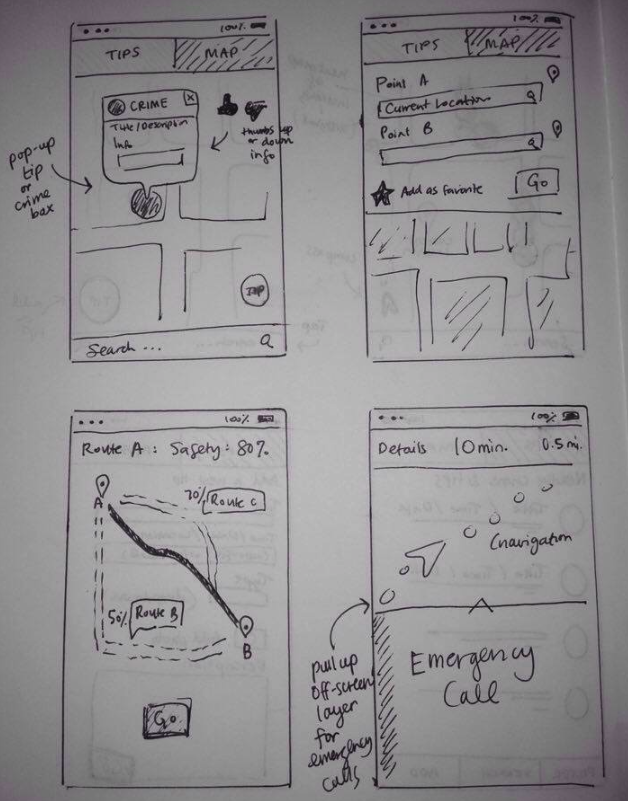 100%
TIPS
MAP
CRIME
X
Title/Description
Info
thumbs up
or down
info
pop-up
tip
or
crime
box
TIP
Search ...
100%
TIPS
MAP
Point A
Current Location
Point B
Add as favorite
Go
100%
Route A : Safety: 80%
A
70%
Route C
50%
Route B
B
Go
100%
Details
10min.
0.5mi.
(navigation
pull up
off-screen
layer
for
emergency
calls
Emergency
Call